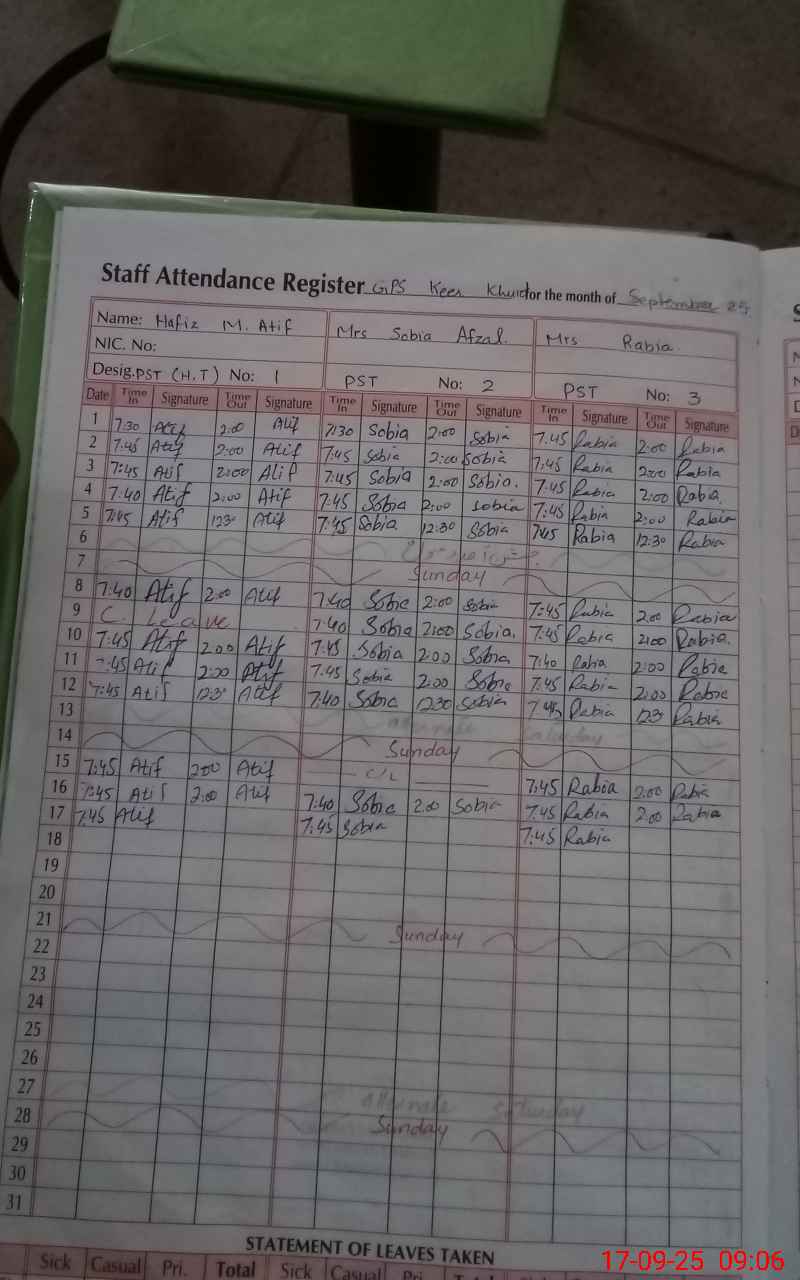 Staff Attendance Register GPS Keer Khurd for the month of September 25
Name: Hafiz M. Atif Mrs Sobia Afzal. Mrs Rabia.
NIC. No:
Desig. PST (H.T) No: 1 PST No: 2 PST No: 3
Date Time In Signature Time Out Signature Time In Signature Time Out Signature Time In Signature Time Out Signature
1 7:30 Atif 2:00 Atif 7:30 Sobia 2:00 Sobia 7:45 Rabia 2:00 Rabia
2 7:45 Atif 2:00 Atif 7:45 Sobia 2:00 Sobia 7:45 Rabia 2:00 Rabia
3 7:45 Atif 2:00 Atif 7:45 Sobia 2:00 Sobia. 7:45 Rabia 2:00 Rabia.
4 7:40 Atif 2:00 Atif 7:45 Sobia 2:00 Sobia 7:45 Rabia 2:00 Rabia
5 7:45 Atif 1230 Atif 7:45 Sobia 12:30 Sobia 7:45 Rabia 12:30 Rabia
6
7 Sunday
8 7:40 Atif 2:00 Atif 7:40 Sobia 2:00 Sobia 7:45 Rabia 2:00 Rabia
9 C. Leave 7:40 Sobia 2:00 Sobia. 7:45 Rabia 2:00 Rabia.
10 7:45 Atif 2:00 Atif 7:45 Sobia 2:00 Sobia 7:40 Rabia 2:00 Rabia
11 7:45 Atif 2:00 Atif 7:45 Sobia 2:00 Sobia 7:45 Rabia 2:00 Rabia
12 7:45 Atif 123 Atif 7:40 Sobia 1230 Sobia 7:45 Rabia 123 Rabia
13 alternate Saturday
14 Sunday
15 7:45 Atif 2:00 Atif C/L 7:45 Rabia 2:00 Rabia
16 7:45 Atif 2:00 Atif 7:40 Sobia 2:00 Sobia 7:45 Rabia 2:00 Rabia
17 7:45 Atif 7:45 Sobia 7:45 Rabia
18
19
20
21 Sunday
22
23
24
25
26
27 alternate Saturday
28 Sunday
29
30
31
STATEMENT OF LEAVES TAKEN
Sick Casual Pri. Total Sick Casual
17-09-25 09:06